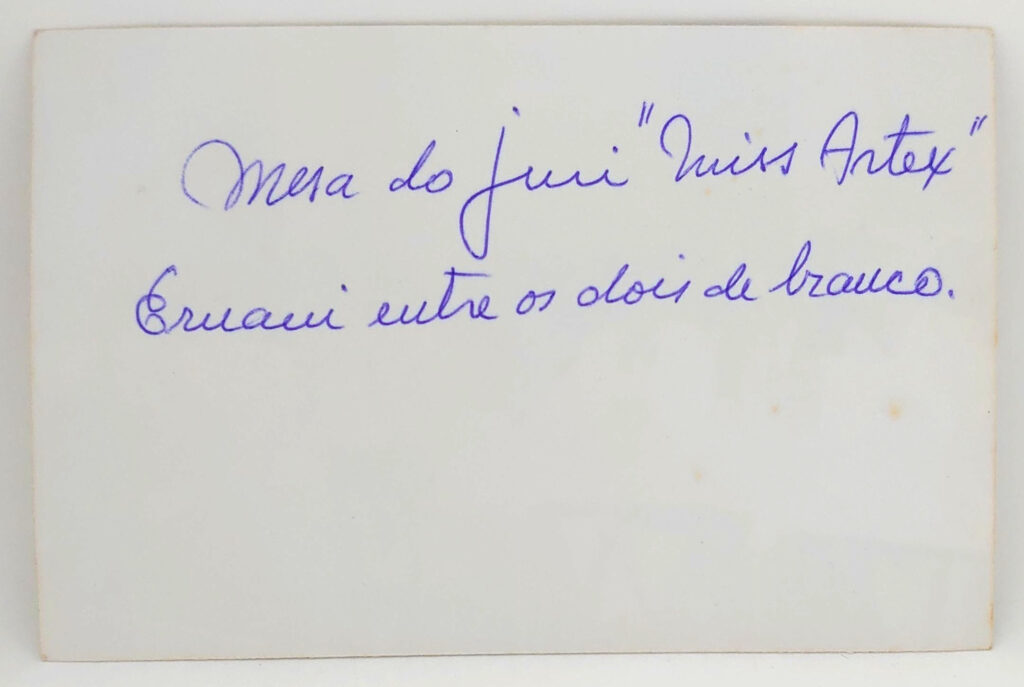 Mesa do juri "Miss Artex"
Ernani entre os dois de branco.